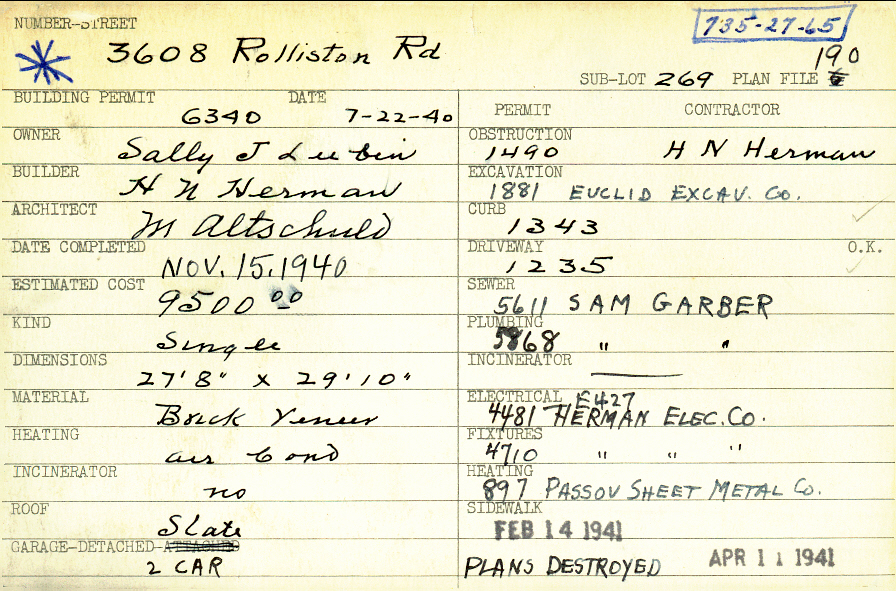 NUMBER-STREET
735-27-65
3608 Rolliston Rd
190
SUB-LOT 269 PLAN FILE
BUILDING PERMIT DATE
6340 7-22-40
OWNER
Sally J Lubin
BUILDER
H N Herman
ARCHITECT
M Altschuld
DATE COMPLETED
NOV. 15, 1940
ESTIMATED COST
9500 00
KIND
Single
DIMENSIONS
27'8" x 29'10"
MATERIAL
Brick Veneer
HEATING
air Cond
INCINERATOR
no
ROOF
Slate
GARAGE-DETACHED-ATTACHED
2 CAR
PERMIT CONTRACTOR
OBSTRUCTION
1490 H N Herman
EXCAVATION
1881 EUCLID EXCAV. Co.
CURB
1343
DRIVEWAY O.K.
1235
SEWER
5611 SAM GARBER
PLUMBING
5868 " "
INCINERATOR
ELECTRICAL E427
4481 HERMAN ELEC. Co.
FIXTURES
4710 " " "
HEATING
897 PASSOV SHEET METAL Co.
SIDEWALK
FEB 14 1941
PLANS DESTROYED APR 11 1941